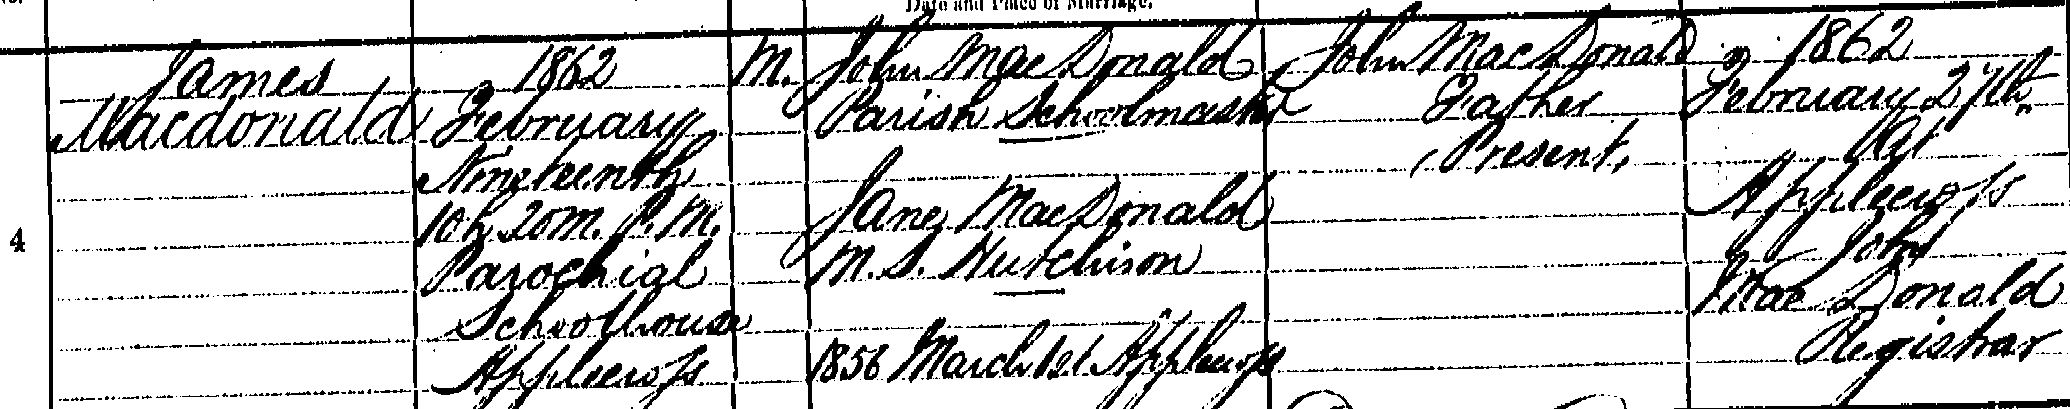 Date and Place of Marriage.
4
James
Macdonald
1862
February
Nineteenth
10h. 20m. P. M.
Parochial
Schoolhouse
Applecross
M.
John MacDonald
Parish Schoolmaster
Jane MacDonald
M. S. Hutchison
1856 March 1st Applecross
John MacDonald
Father
Present.
1862
February 27th
At
Applecross
John
MacDonald
Registrar